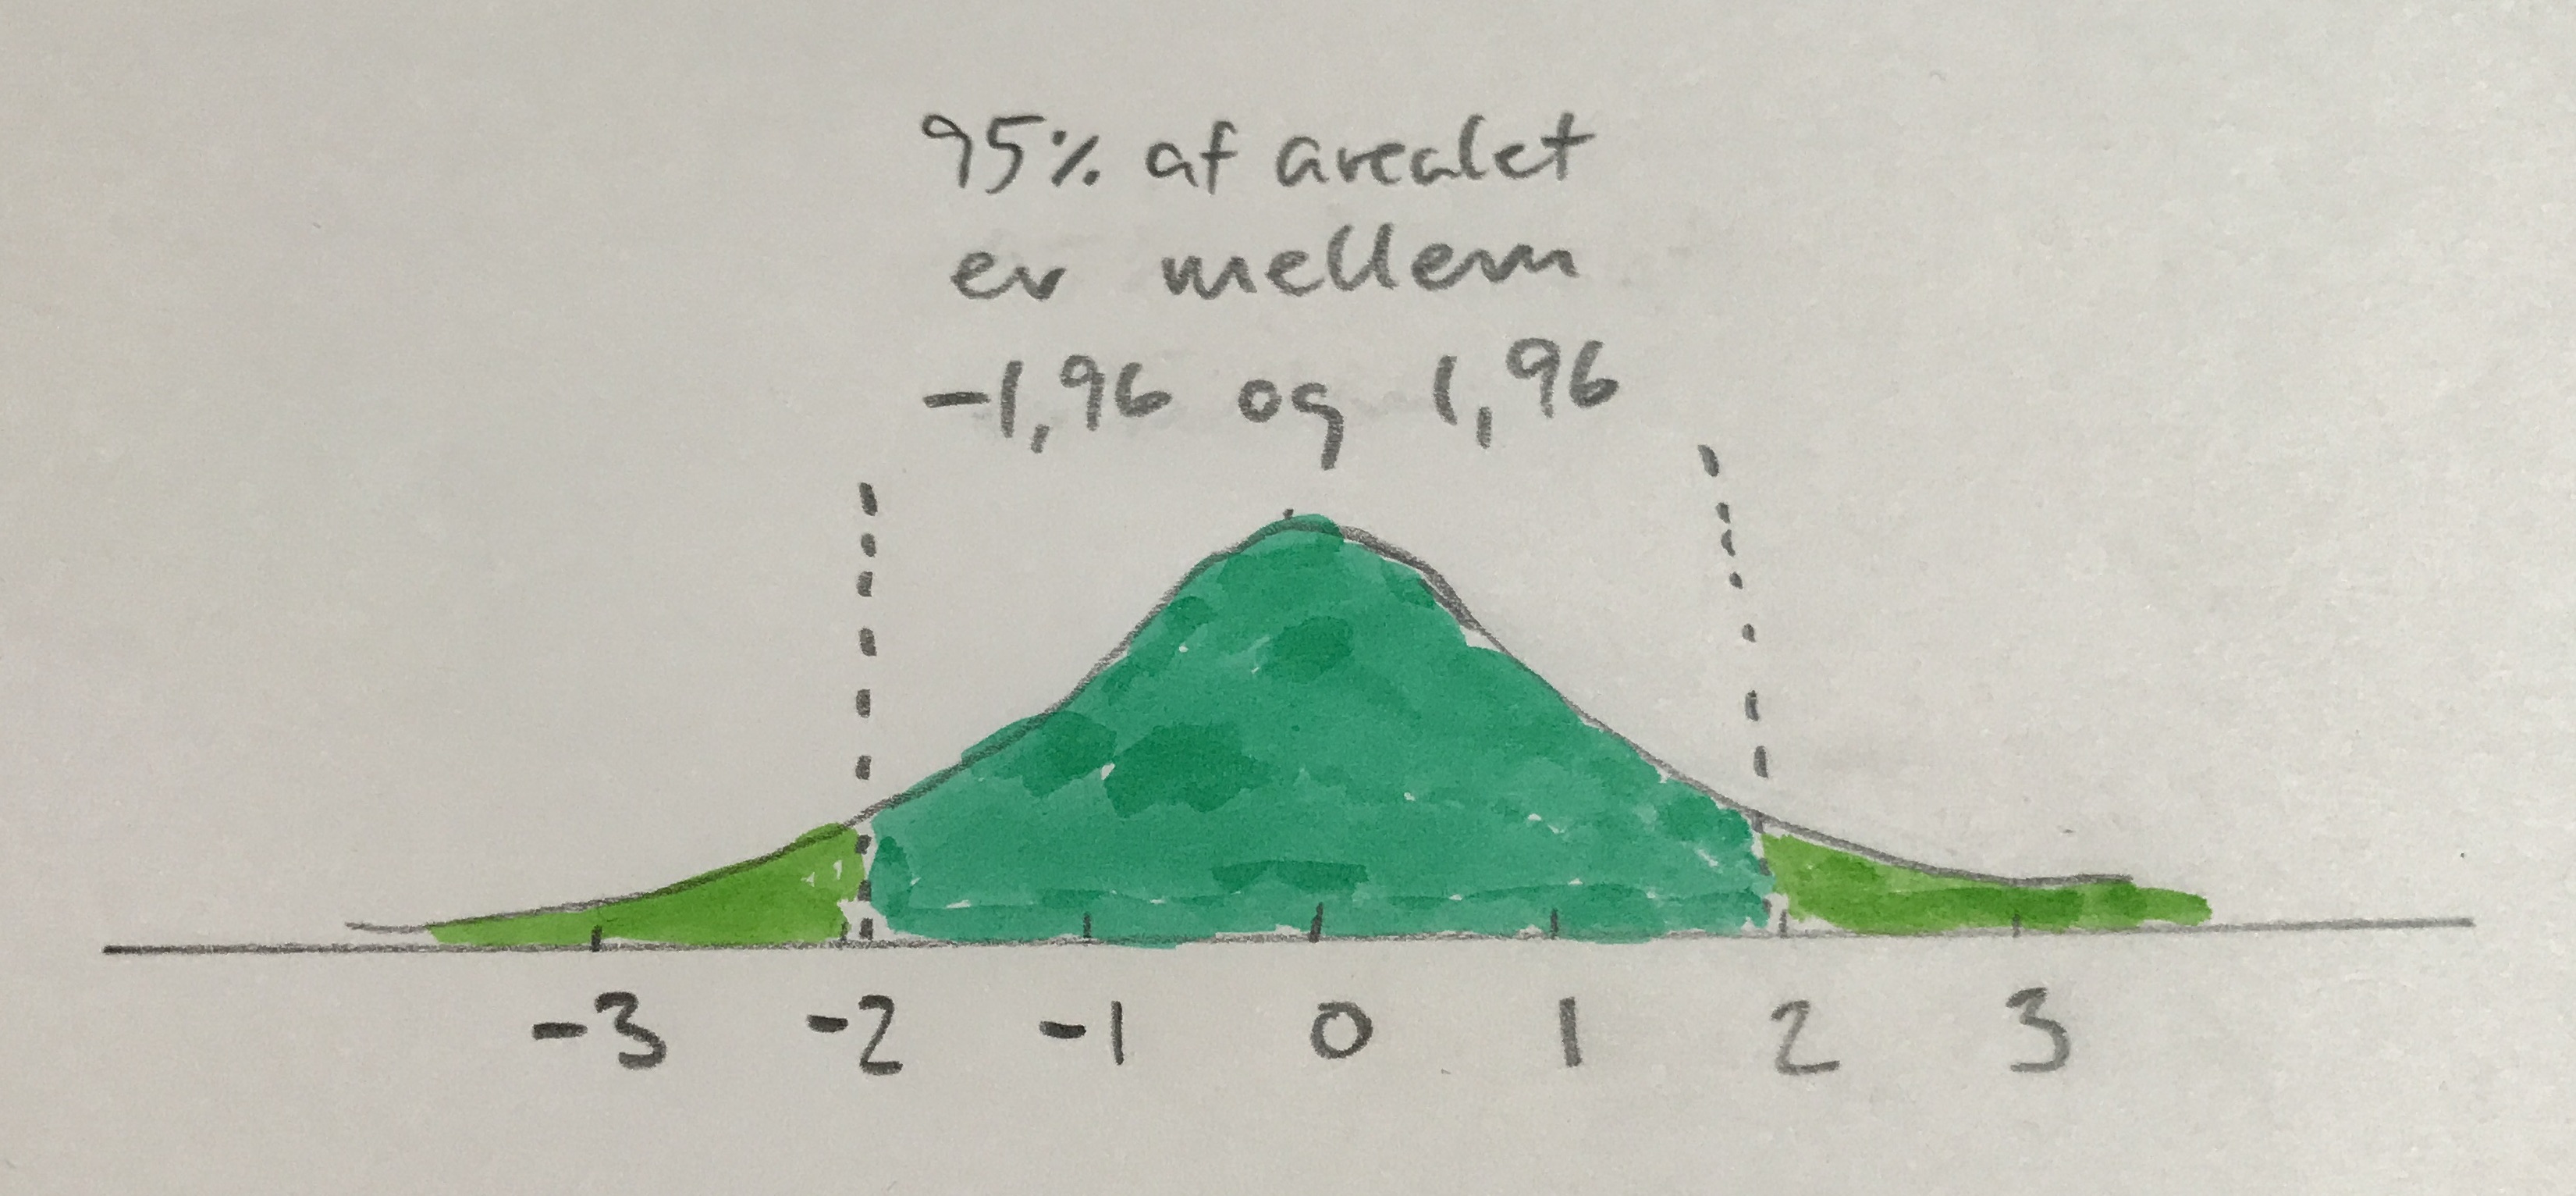 95% af arealet
er mellem
-1,96 og 1,96
-3 -2 -1 0 1 2 3